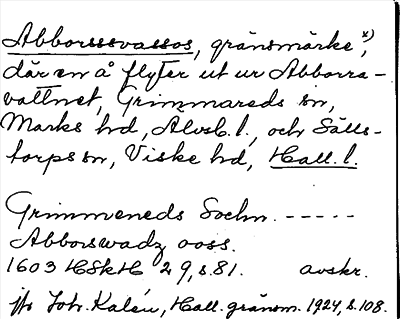 Abborssvassos, gränsmärke x),
där en å flyter ut ur Abborra-
vattnet, Grimmareds sn,
Marks hd, Älvsb. l., och Sälls-
torps sn, Viske hd, Hall. l.
Grimmeneds Sochn. -----
Abborswadz ooss.
1603 HSkH 29, s. 81. avskr.
jfr Joh. Kalén, Hall. gränsm. 1924, s. 108.